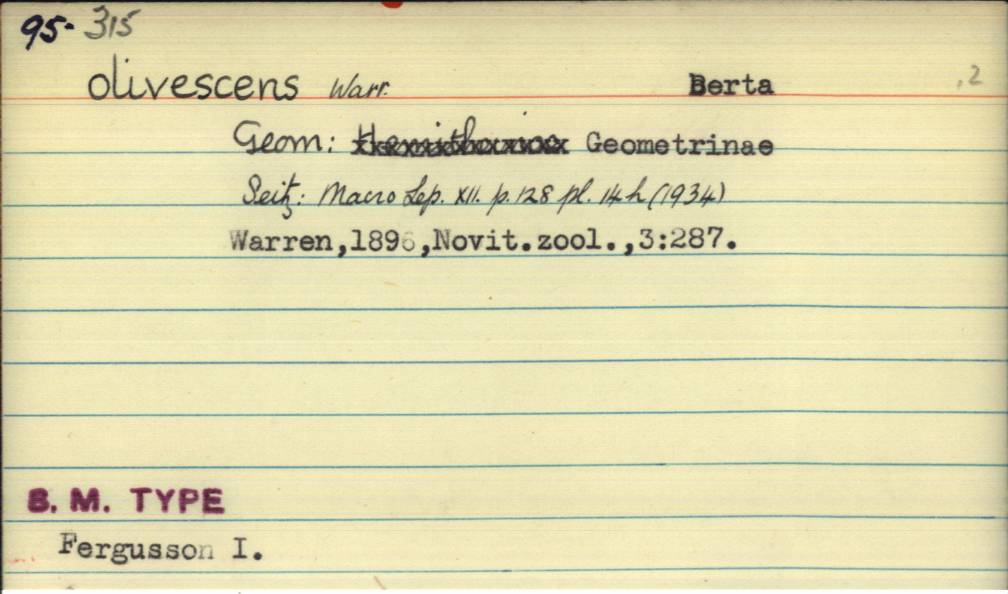 95-315
olivescens Warr. Berta ,2
Geom: Hemitheinae Geometrinae
Seitz: Macro Lep. XII. p.128 pl. 14h (1934)
Warren,1896,Novit.zool.,3:287.
B. M. TYPE
Fergusson I.